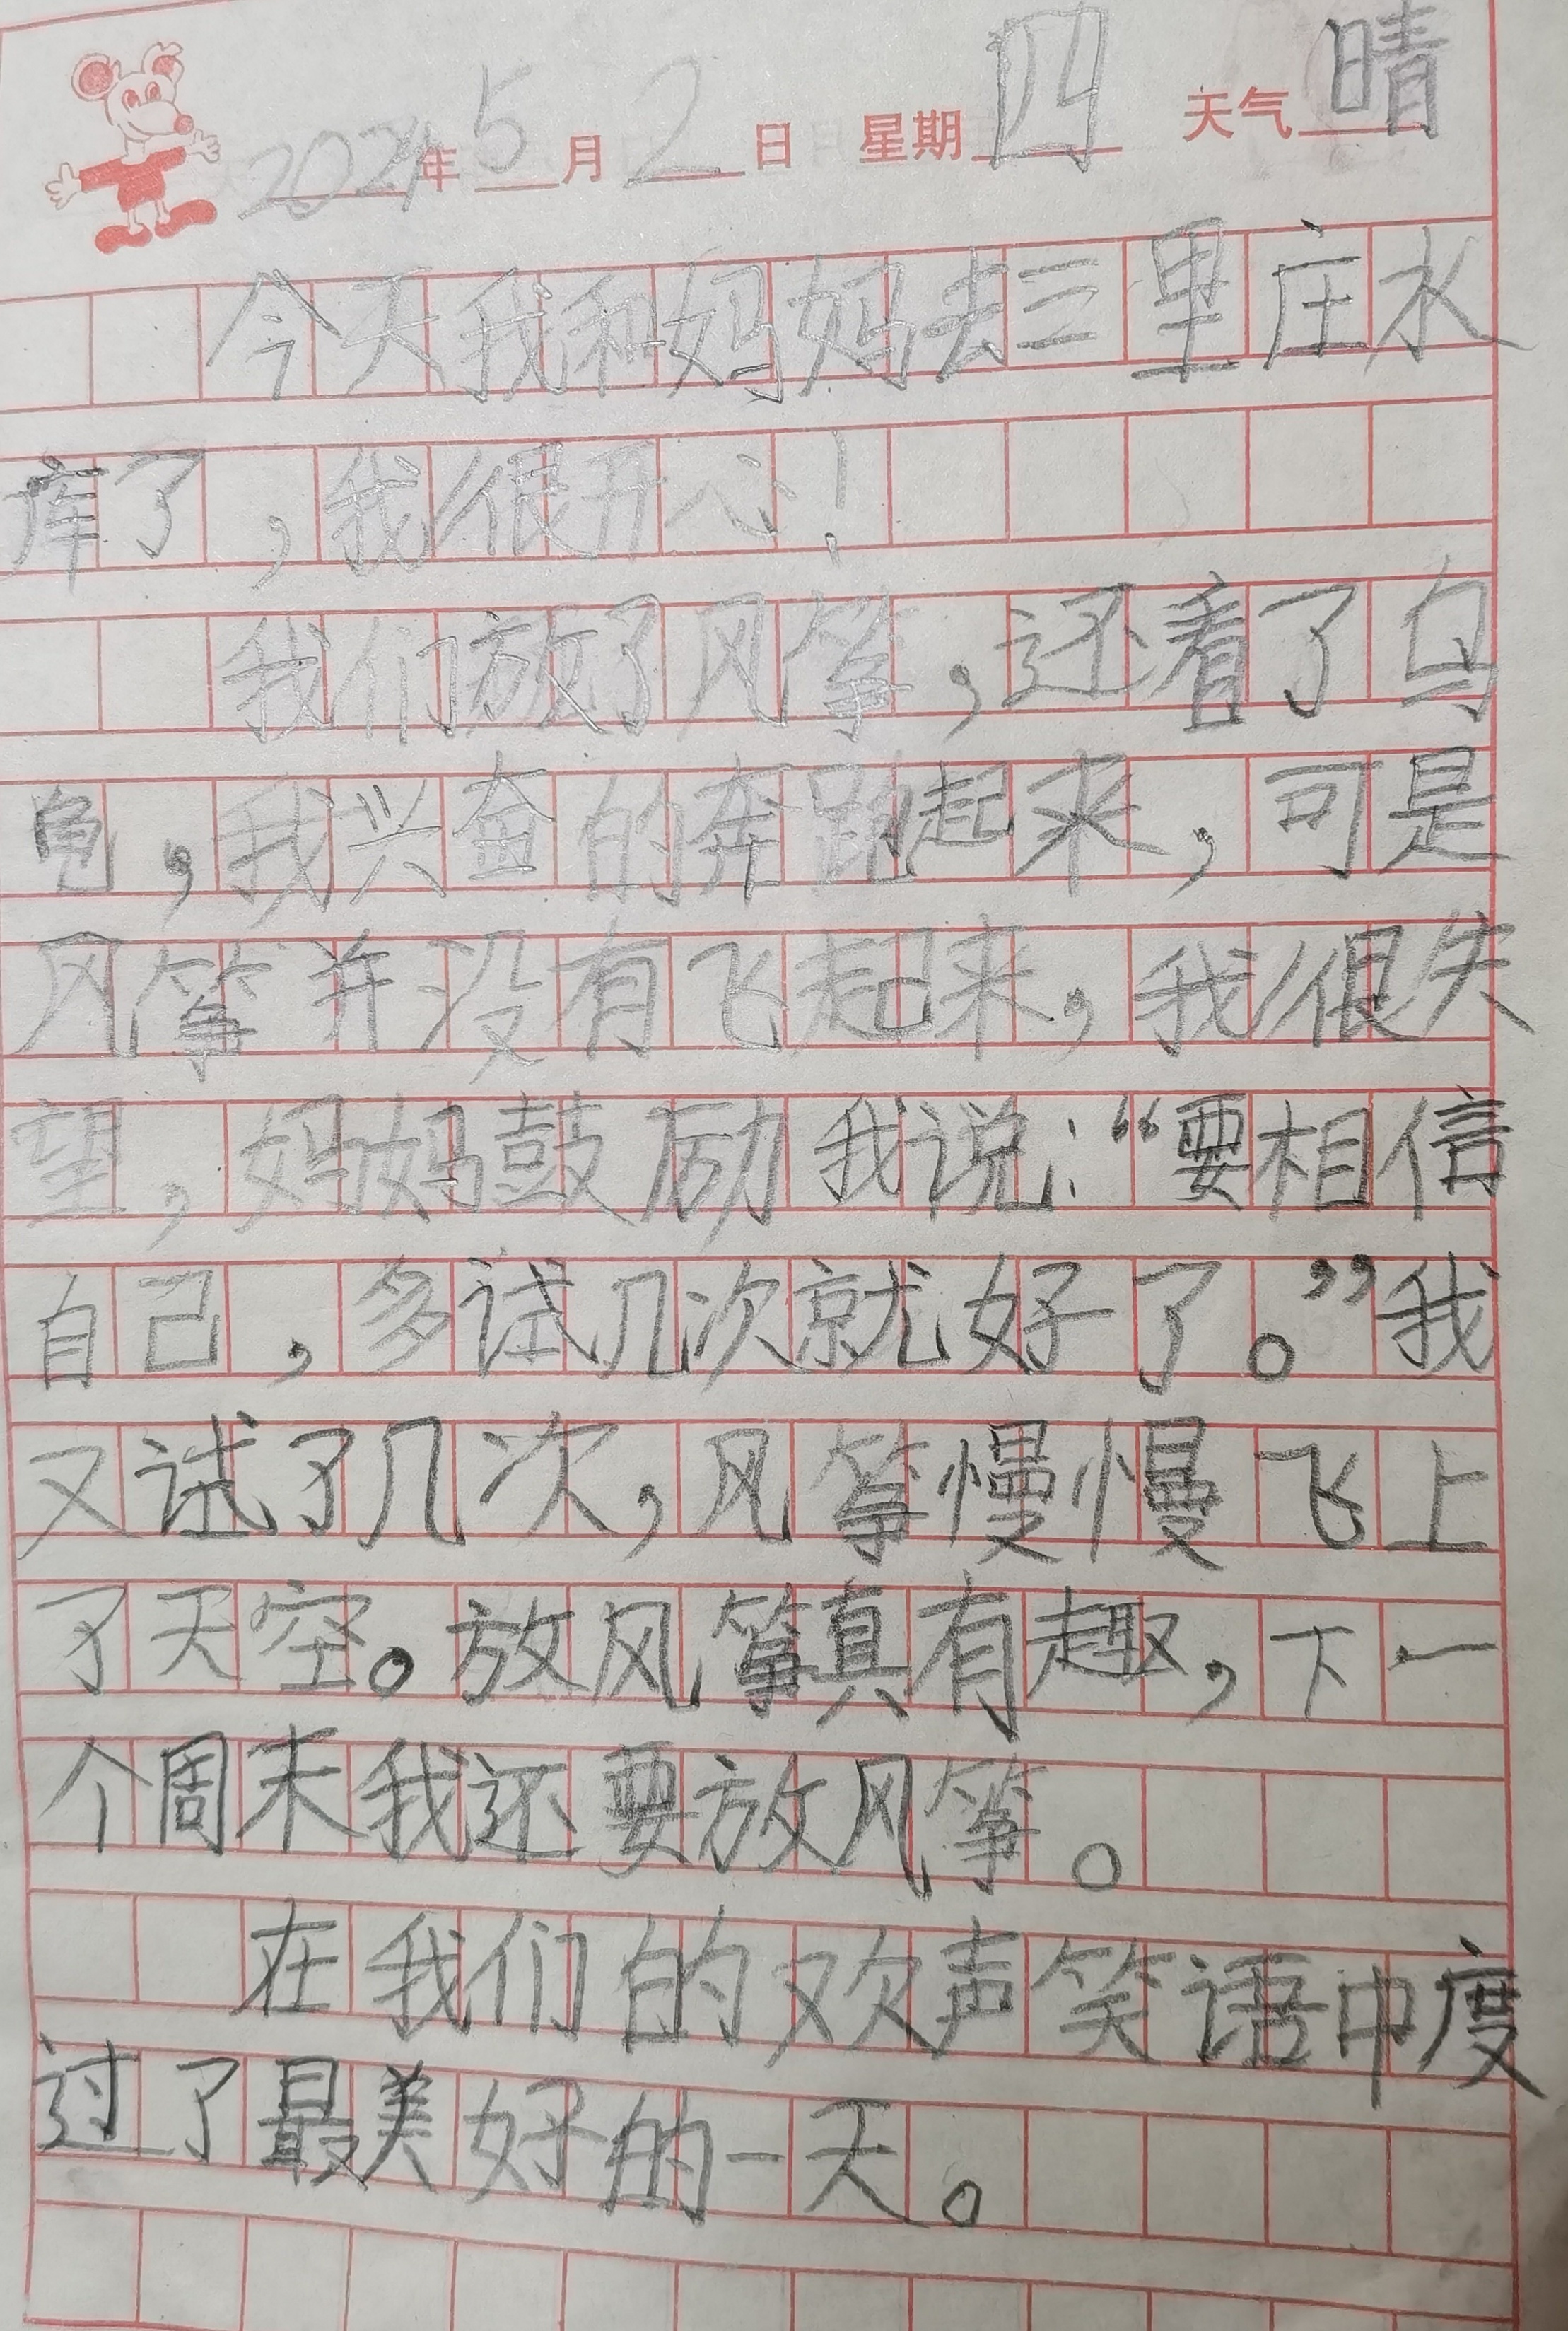 2024年5月2日 星期四 天气晴
今天我和妈妈去三里庄水
库了，我很开心！
我们放了风筝，还看了乌
龟，我兴奋的奔跑起来，可是
风筝并没有飞起来，我很失
望，妈妈鼓励我说：“要相信
自己，多试几次就好了。”我
又试了几次，风筝慢慢飞上
了天空。放风筝真有趣，下一
个周末我还要放风筝。
在我们的欢声笑语中度
过了最美好的一天。